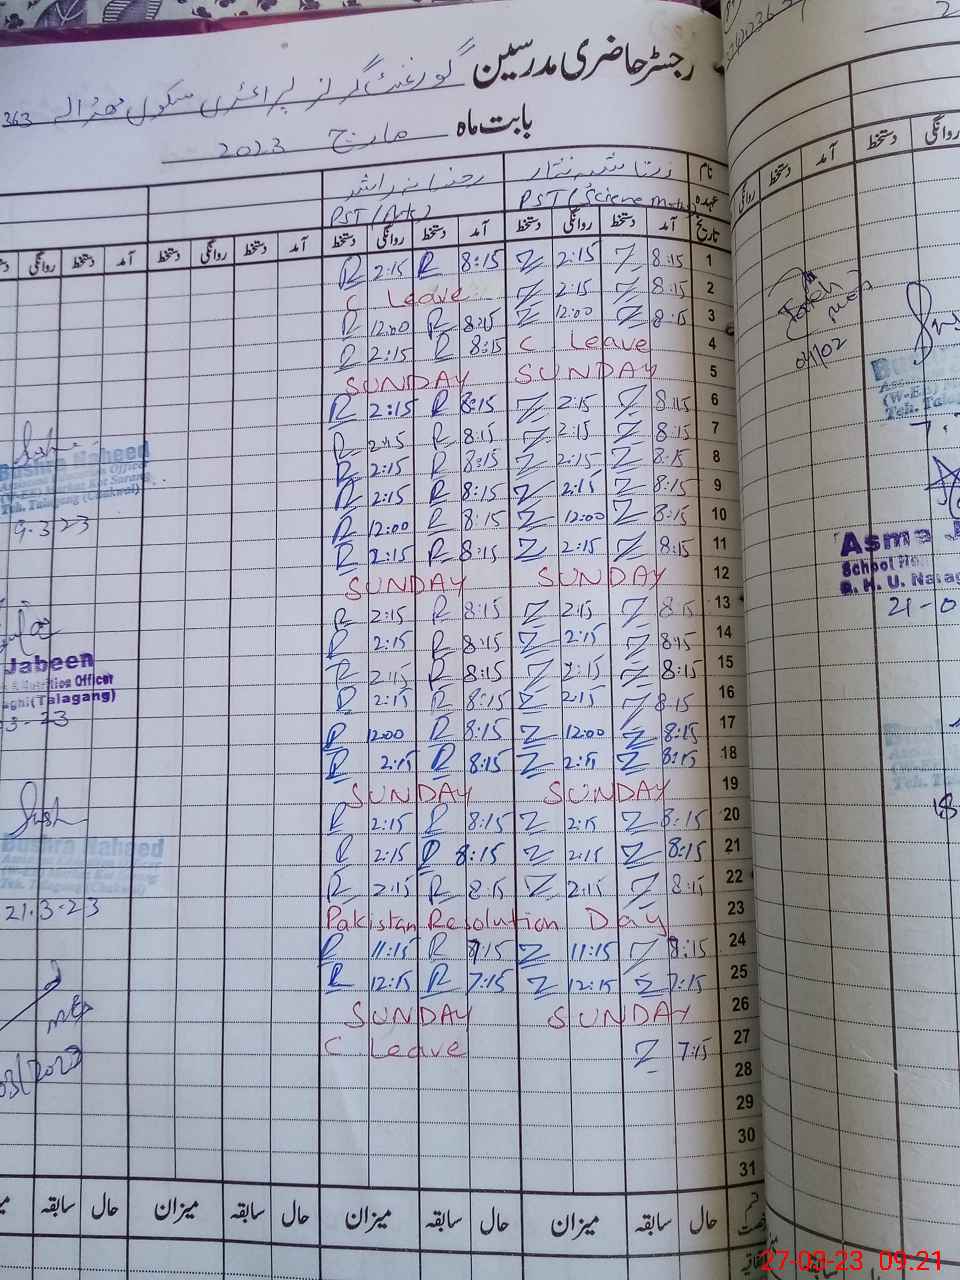 رجسٹر حاضری مدرسین گورنمنٹ گرلز پرائمری سکول 363
بابت ماہ مارچ 2023
نام
عہدہ PST (Science Math) PST (Arts)
تاریخ آمد دستخط روانگی دستخط آمد دستخط روانگی دستخط آمد دستخط روانگی دستخط آمد دستخط روانگی
1 8:15 Z 2:15 Z 8:15 R 2:15 R
2 8:15 Z 2:15 Z C Leave
3 8:15 Z 12:00 Z 8:15 R 12:00 R
4 C Leave 8:15 R 2:15 R
5 SUNDAY SUNDAY
6 8:15 Z 2:15 Z 8:15 R 2:15 R
7 8:15 Z 2:15 Z 8:15 R 2:15 R
8 8:15 Z 2:15 Z 8:15 R 2:15 R
9 8:15 Z 2:15 Z 8:15 R 2:15 R
10 8:15 Z 12:00 Z 8:15 R 12:00 R
11 8:15 Z 2:15 Z 8:15 R 2:15 R
12 SUNDAY SUNDAY
13 8:15 Z 2:15 Z 8:15 R 2:15 R
14 8:15 Z 2:15 Z 8:15 R 2:15 R
15 8:15 Z 2:15 Z 8:15 R 2:15 R
16 8:15 Z 2:15 Z 8:15 R 2:15 R
17 8:15 Z 12:00 Z 8:15 R 12:00 R
18 8:15 Z 2:15 Z 8:15 R 2:15 R
19 SUNDAY SUNDAY
20 8:15 Z 2:15 Z 8:15 R 2:15 R
21 8:15 Z 2:15 Z 8:15 R 2:15 R
22 8:15 Z 2:15 Z 8:15 R 2:15 R
23 Pakistan Resolution Day
24 8:15 Z 11:15 Z 15 R 11:15 R
25 7:15 Z 12:15 Z 7:15 R 12:15 R
26 SUNDAY SUNDAY
27 7:15 Z C Leave
28
29
30
31
حال سابقہ میزان حال سابقہ میزان حال سابقہ میزان حال سابقہ
Bushra Naheed
Teh. Talagang (Chakwal)
9.3.23
Jabeen
Nutrition Officer
(Talagang)
Bushra Naheed
Teh. Talagang (Chakwal)
21.3.23
03/2023
روانگی دستخط آمد دستخط روانگی
04/02
(W-E
Teh. Tala
Asma J
School He
B. H. U. Narag
21-0
18
27-03-23 09:21